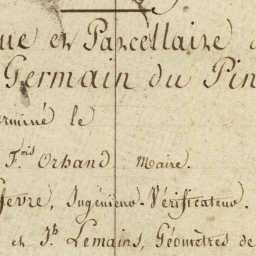 ue et Parcellaire d
Germain du Pin
erminé le
F.ois Orhand Maire.
fevre, Ingénieur-Vérificateur.
et J.h Lemains, Géomètres de